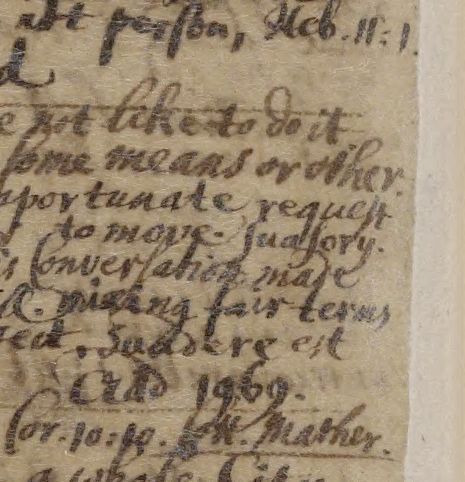 person, Heb. 11:1.
e not like to do it
some means or other.
portunate request
to move. Suasory.
is Conversation made
mixing fair terms
. Suadere est
1969.
Cor. 10:10. Mather.
a whole City